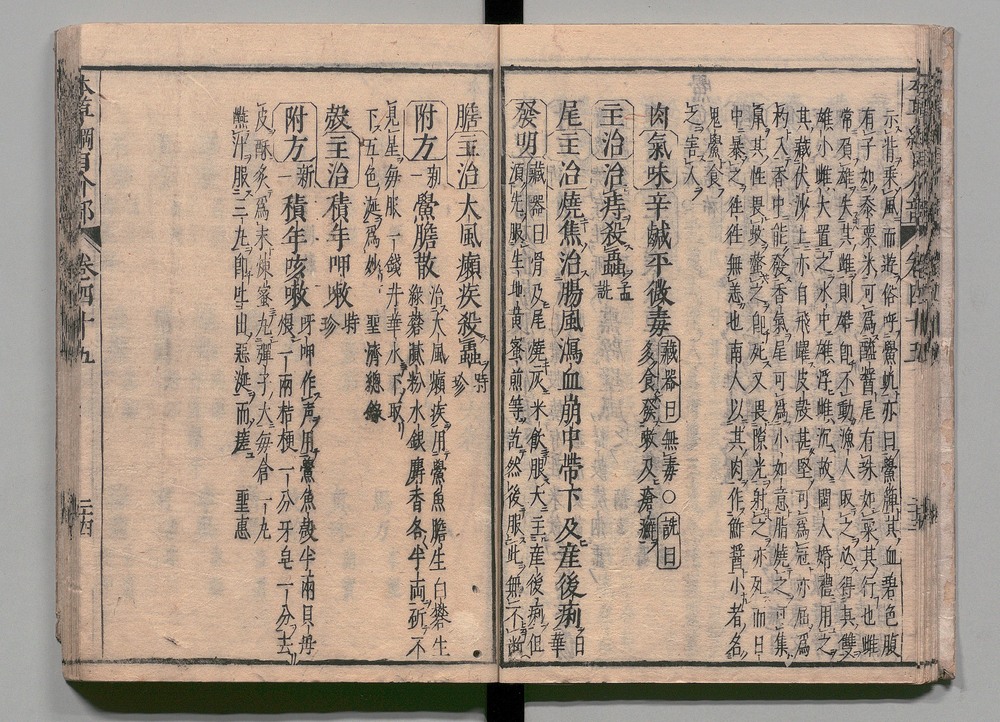 示背乗風而遊俗呼鱟帆亦曰鱟簰其血碧色腹
有子如黍粟米可為醯醬尾有珠如粟其行也雌
常負雄失其雌則雄即不動漁人取之必得其雙
雄小雌大置之水中雄浮雌沉故閩人婚禮用之
其藏伏沙上亦自飛躍皮殼甚堅可為冠亦屈為
杓入香中能發香氣尾可為小如意脂燒之可集
鼠其性畏蚊螫之即死又畏隙光射之亦死而日
中暴之往往無恙也南人以其肉作鮓醬小者名
鬼鱟食
之害人
肉氣味辛鹹平微毒 藏器曰無毒○詵曰
多食發嗽及瘡癬
主治治痔殺蟲 孟詵
尾主治燒焦治腸風瀉血崩中帶下及産後痢 日華
發明 藏器曰骨及尾燒灰米飲服大主産後痢但
須先服生地黃蜜煎等訖然後服此無不斷
膽主治大風癩疾殺蟲 時珍
附方 新一 鱟膽散 治大風癩疾用鱟魚膽生白礬生
綠礬膩粉水銀麝香各半両研不
見星每服一錢井華水下取
下五色涎為妙 聖濟總錄
殼主治積年呷嗽 時珍
附方 新一 積年咳嗽 呀呷作声用鱟魚殼半両貝母
煨一両桔梗一分牙皂一分去
皮酥炙為末煉蜜丸彈子大每含一丸
嚥汁服三丸即吐出惡涎而瘥 聖惠
本草綱目介部 卷四十五
二十四